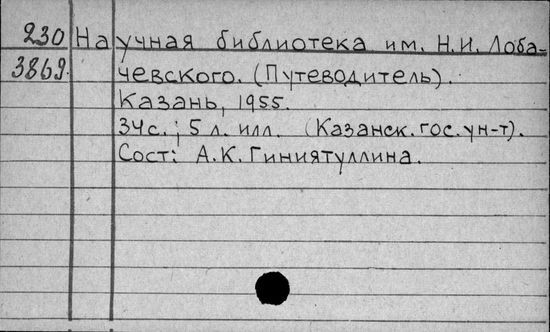 230 Научная библиотека им. Н.И. Лоба-
3869. чевского. (Путеводитель).
Казань, 1955.
34с.; 5 л. илл. (Казанск. гос. ун-т).
Сост: А.К. Гиниятуллина.